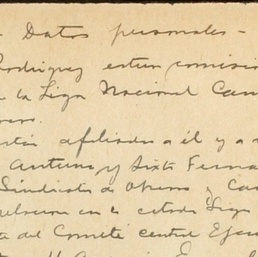 - Datos personales -
Rodriguez estuvo comision
la Liga Nacional Cam
están afiliados a él y a
Antuna y Sixto Ferna
Sindicatos de Obreros y Cam
en la citada Liga
del Comité central Ejecu